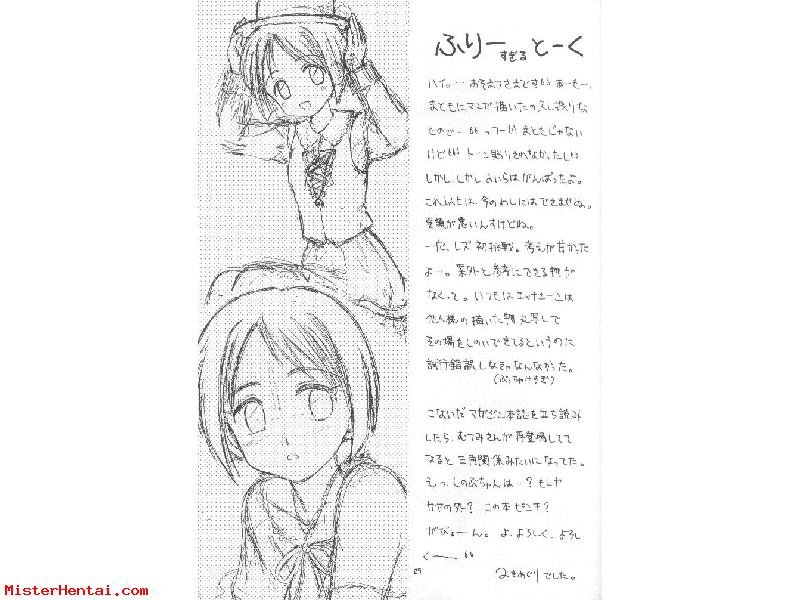 ふりーすぎるとーく
ハイ。… おそまつさまです゛ あーもー、
まともにマンガ描いたの久し振りな
もので… っつーかまともじゃない
けど トーン貼りきれなかったしぃ
しかし、しかしおいらはがんばったよ。
これ以上は、今のわしにはできませぬ。
要領が悪いんすけどね。
一応、レズ初挑戦。考えが甘かった
よ…。案外と参考にできる物が
なくって。いつもはエッチシーンは
他人様の描いた物丸写しで
その場をしのいできてるというのに
試行錯誤しまくんなんなかった。
(ぶっちゃけすぎ)
こないだマガジン本誌を立ち読み
したら、むつみさんが再登場してて
なると三角関係みたいになってた。
えっ、しのぶちゃんは…? もしや
カヤの外? この本ピンチ?
がびょーん。よ、よろしく、よろし
く――
みきめぐりでした。
29
MisterHentai.com